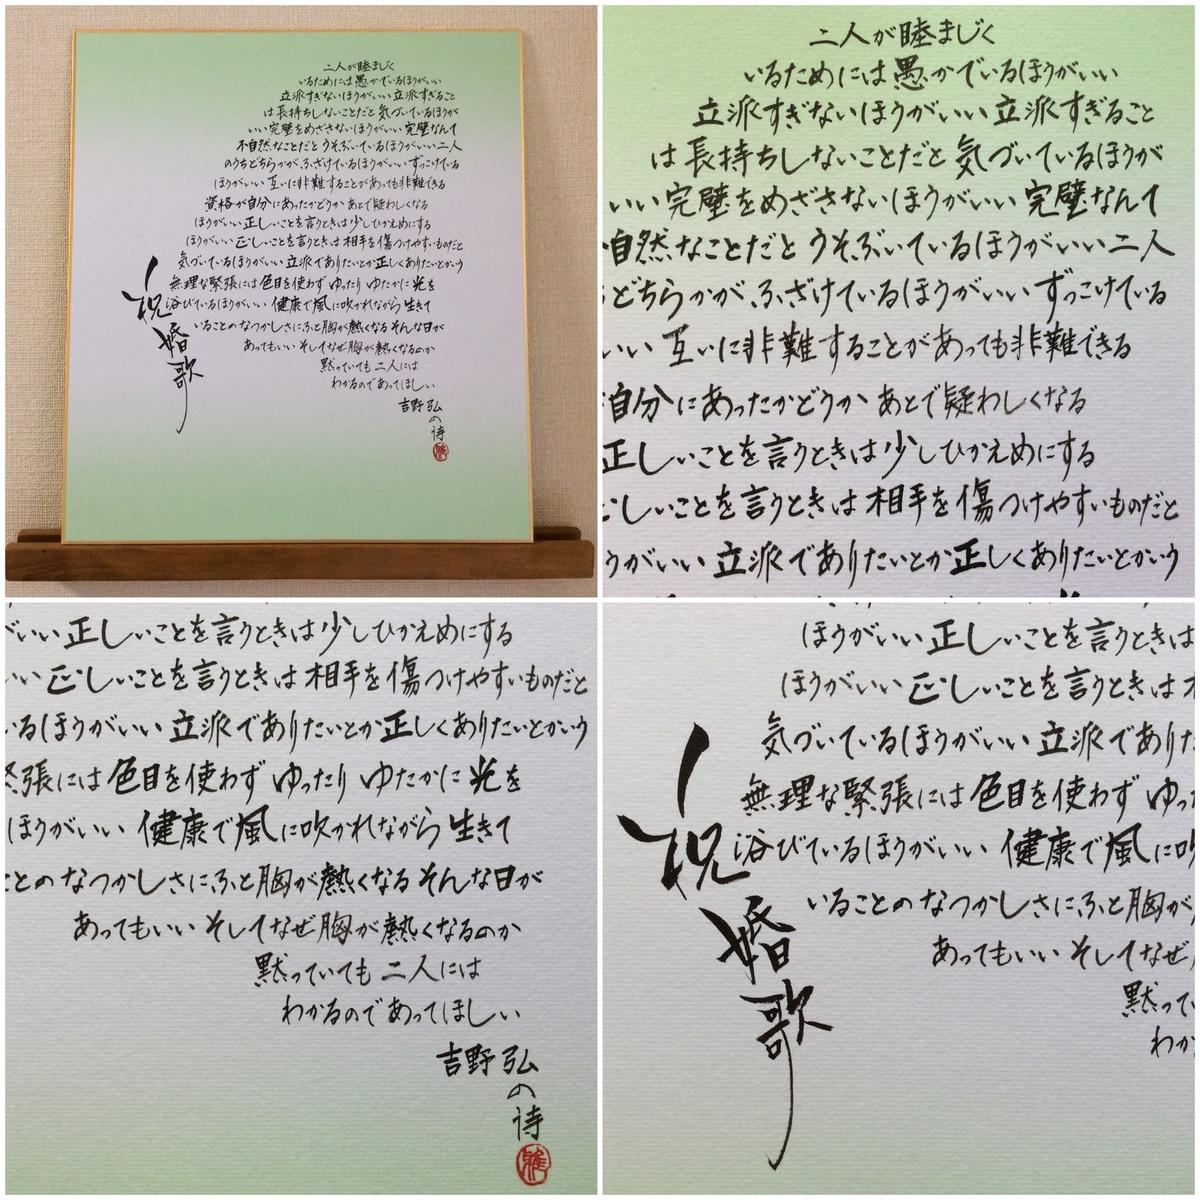 二人が睦まじく
いるためには愚かでいるほうがいい
立派すぎないほうがいい 立派すぎること
は長持ちしないことだと気づいているほうが
いい 完璧をめざさないほうがいい 完璧なんて
不自然なことだと うそぶいているほうがいい 二人
のうちどちらかが、ふざけているほうがいい ずっこけている
ほうがいい 互いに非難することがあっても非難できる
資格が自分にあったかどうか あとで疑わしくなる
ほうがいい 正しいことを言うときは少しひかえめにする
ほうがいい 正しいことを言うときは 相手を傷つけやすいものだと
気づいているほうがいい 立派でありたいとか正しくありたいとかいう
無理な緊張には 色目を使わず ゆったり ゆたかに 光を
浴びているほうがいい 健康で風に吹かれながら 生きて
いることの なつかしさに、ふと胸が熱くなる そんな日が
あってもいい そしてなぜ胸が熱くなるのか
黙っていても 二人には
わかるのであってほしい
祝婚歌
吉野 弘
の
詩
二人が睦まじく
いるためには愚かでいるほうがいい
立派すぎないほうがいい 立派すぎること
は長持ちしないことだと気づいているほうが
いい 完璧をめざさないほうがいい 完璧なんて
自然なことだと うそぶいているほうがいい 二人
どちらかが、ふざけているほうがいい ずっこけている
いい 互いに非難することがあっても非難できる
自分にあったかどうか あとで疑わしくなる
正しいことを言うときは少しひかえめにする
しいことを言うときは 相手を傷つけやすいものだと
うがいい 立派でありたいとか正しくありたいとかいう
がいい 正しいことを言うときは少しひかえめにする
い 正しいことを言うときは 相手を傷つけやすいものだと
いるほうがいい 立派でありたいとか正しくありたいとかいう
張には 色目を使わず ゆったり ゆたかに 光を
ほうがいい 健康で風に吹かれながら 生きて
ことの なつかしさに、ふと胸が熱くなる そんな日が
あってもいい そしてなぜ胸が熱くなるのか
黙っていても 二人には
わかるのであってほしい
吉野 弘
の
詩
ほうがいい 正しいことを言うときは
ほうがいい 正しいことを言うときは
気づいているほうがいい 立派でありた
無理な緊張には 色目を使わず ゆっ
浴びているほうがいい 健康で風に吹
いることの なつかしさに、ふと胸が
あってもいい そしてなぜ
黙ってい
わか
祝婚歌